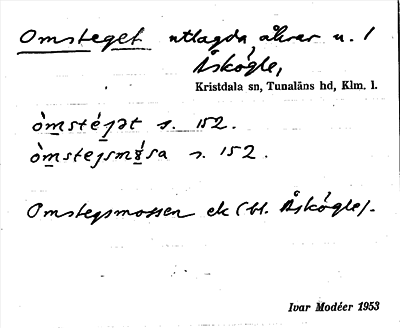 Omsteget utlagda åkrar u. /
Åskógle,
Kristdala sn, Tunaläns hd, Klm. l.
òmstéjət s. 152.
òmstejsmósa s. 152.
Omstegsmossen ek (bl. Åskógle).
Ivar Modéer 1953